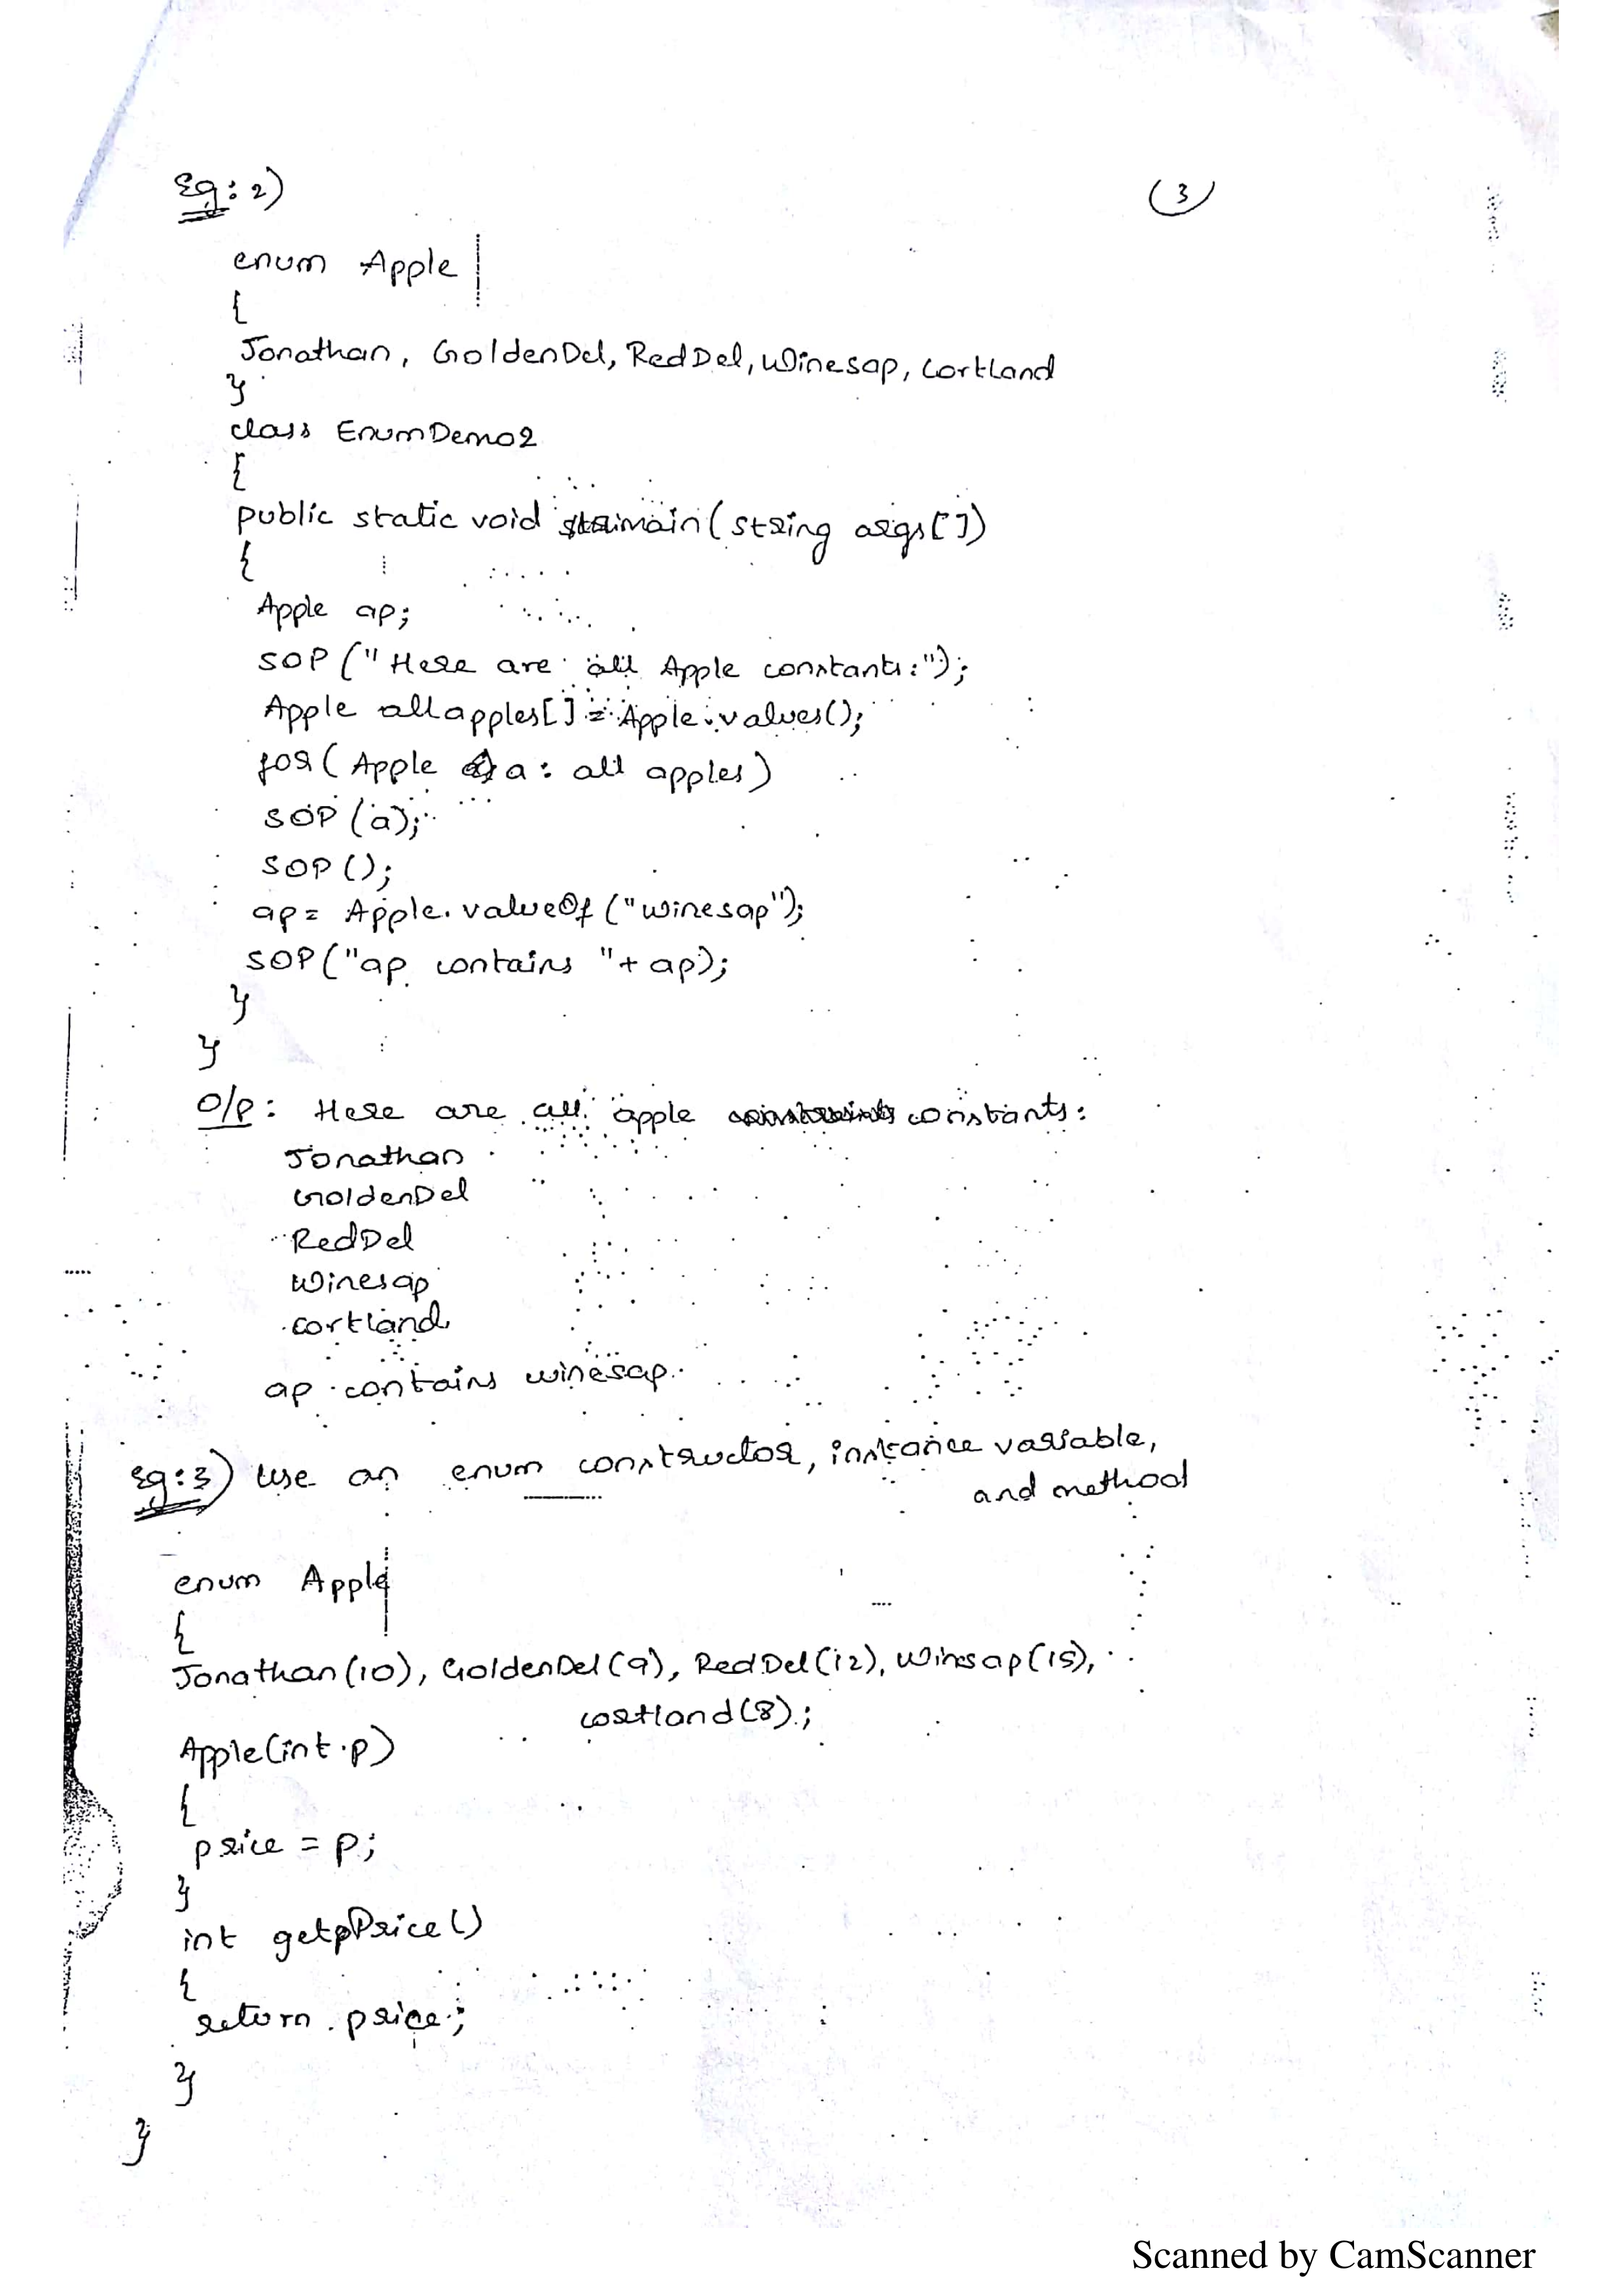 Eg: 2)
(3)
enum Apple
{
Jonathan, GoldenDel, RedDel, Winesap, Cortland
}
class EnumDemo2
{
public static void main(String args[])
{
Apple ap;
SOP ("Here are all Apple constants:");
Apple allapples[] = Apple.values();
for (Apple a: all apples)
SOP (a);
SOP ();
ap = Apple.valueOf ("winesap");
SOP ("ap contains "+ ap);
}
}
O/P: Here are all apple constants:
Jonathan
GoldenDel
RedDel
Winesap
cortland
ap contains winesap.
Eg: 3) Use an enum constructor, instance variable,
and method
enum Apple
{
Jonathan(10), GoldenDel(9), RedDel(12), Winsap(15),
cortland(8);
Apple(int p)
{
price = p;
}
int getpPrice()
{
return price;
}
}
Scanned by CamScanner